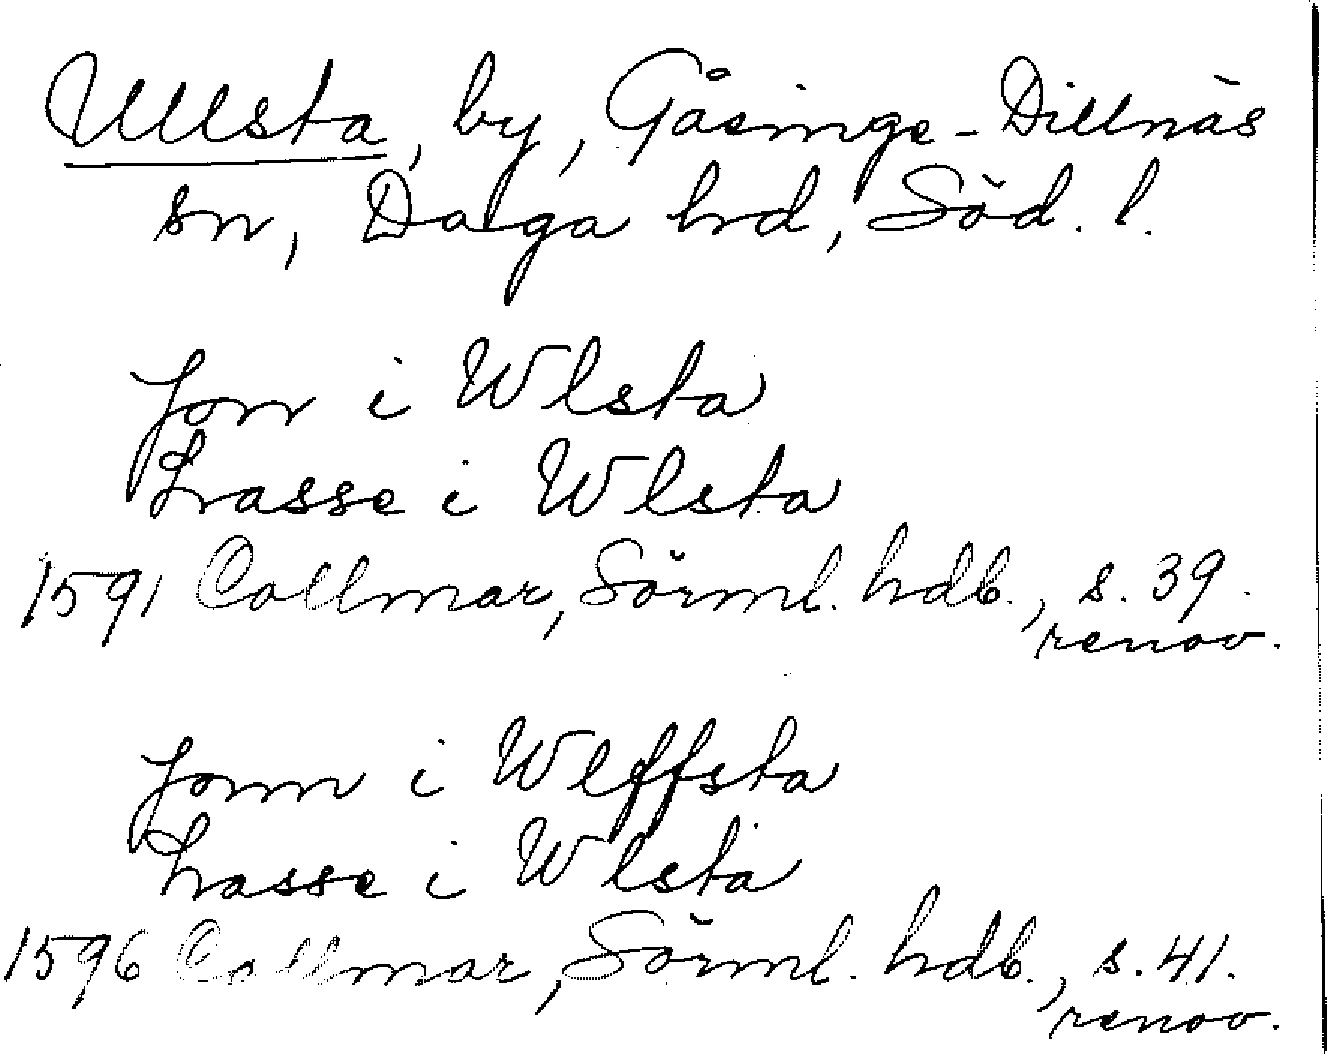 Ullsta, by, Gåsinge-Dillnäs
sn, Daga hd, Söd. l.
Jon i Wlsta
Lasse i Wlsta
1591 Collmar, Sörml. hdb., s. 39.
renov.
Jonn i Wlffsta
Lasse i Wlsta
1596 Collmar, Sörml. hdb., s. 41.
renov.